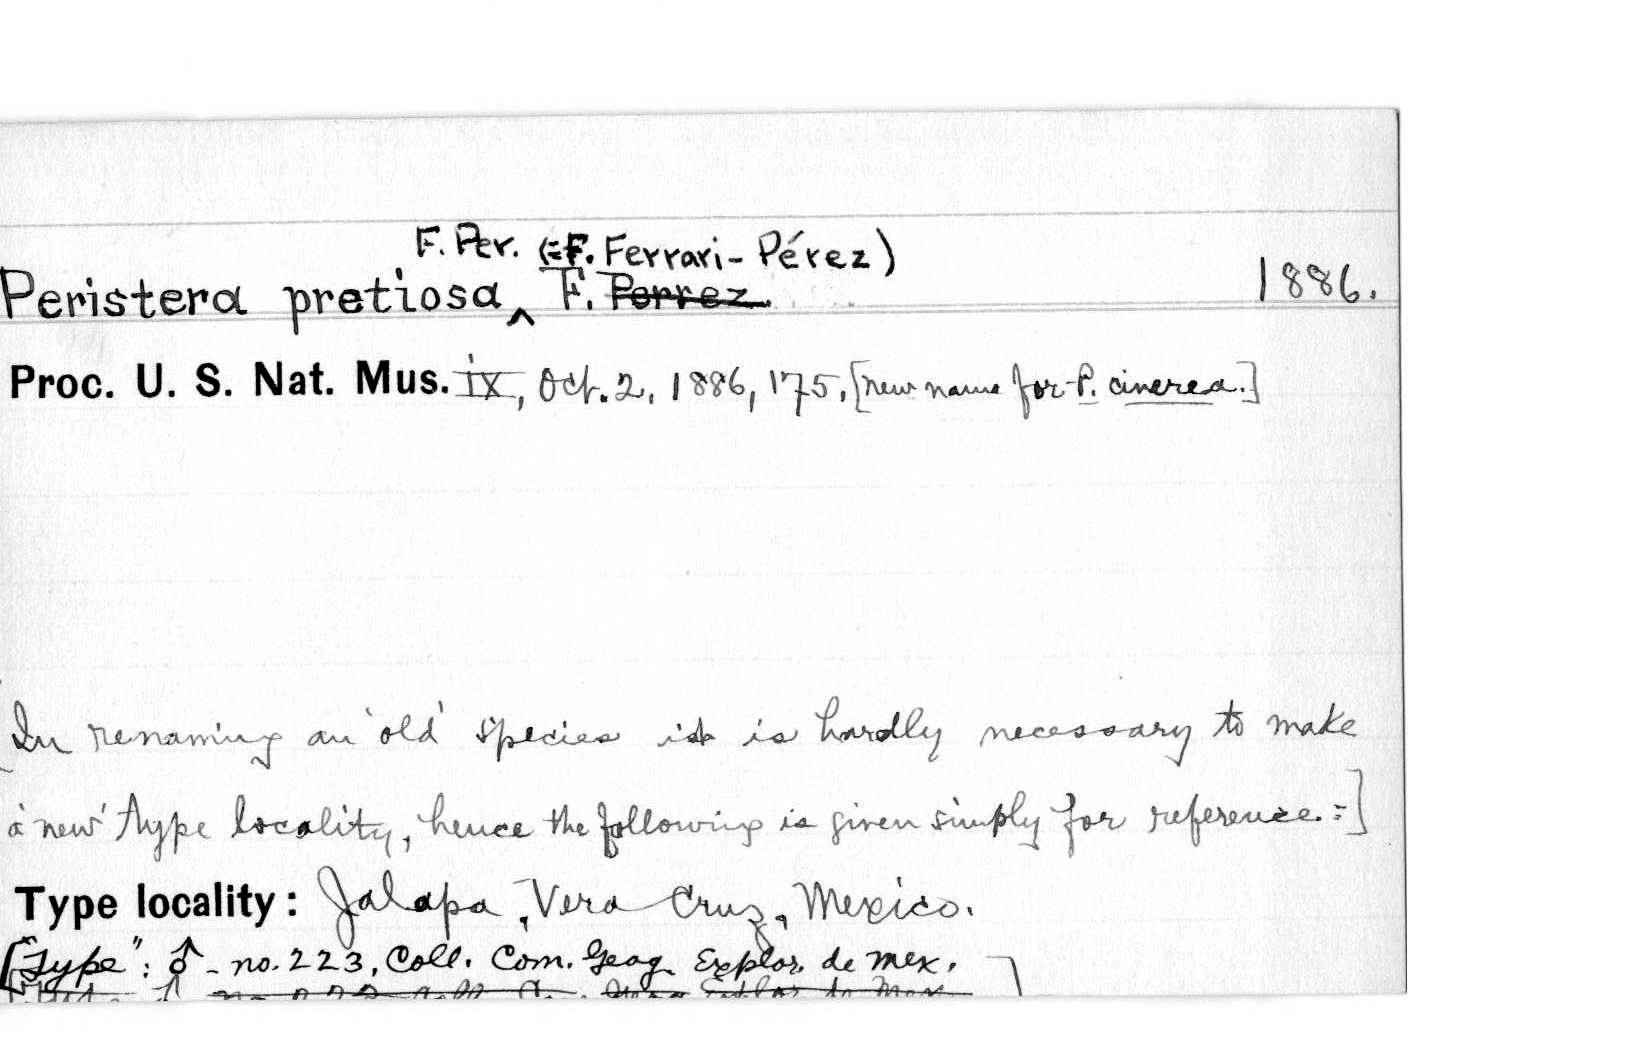 F. Per. (=F. Ferrari-Pérez)
Peristera pretiosa ^ F. Perrez 1886.
Proc. U. S. Nat. Mus. IX, Oct. 2, 1886, 175, [new name for P. cinerea.]
[In renaming an 'old' species it is hardly necessary to make
a 'new' type locality, hence the following is given simply for reference.=]
Type locality: Jalapa, Vera Cruz, Mexico.
["Type": ♂ - no. 223, Coll. Com. Geog. Explor. de Mex.